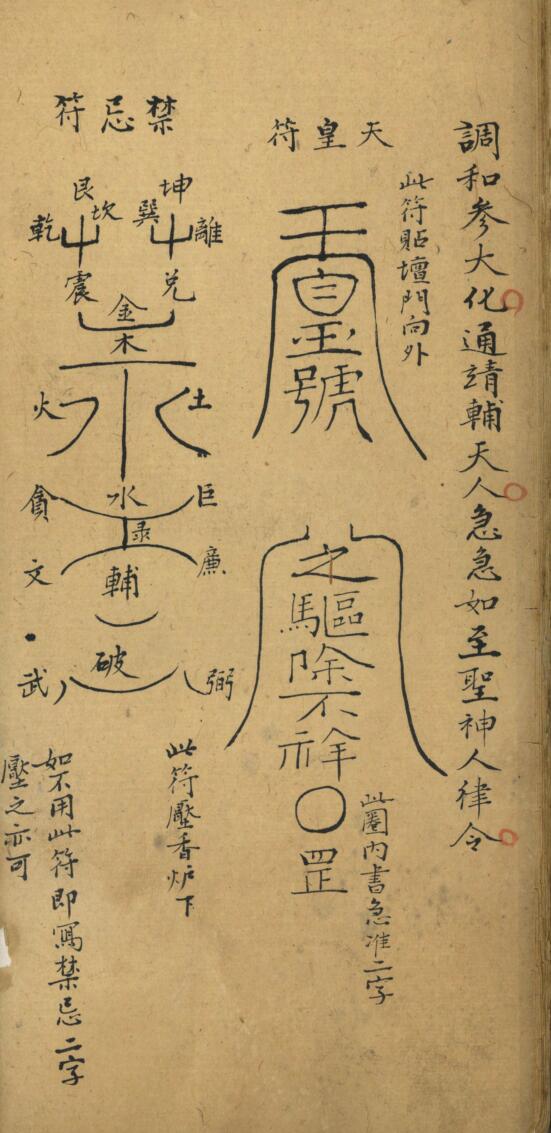 調和參大化通靖輔天人急急如至聖神人律令
天皇符
此符貼壇門向外
王
白玉號
之驅除不祥
罡
此圈内書急准二字
禁忌符
坤 離 巽 兌
艮 坎 乾 震
金
木
土 火
水
巨 貪
彔
廉 文
輔
破
弼 武
此符壓香炉下
如不用此符即寫禁忌二字
壓之亦可